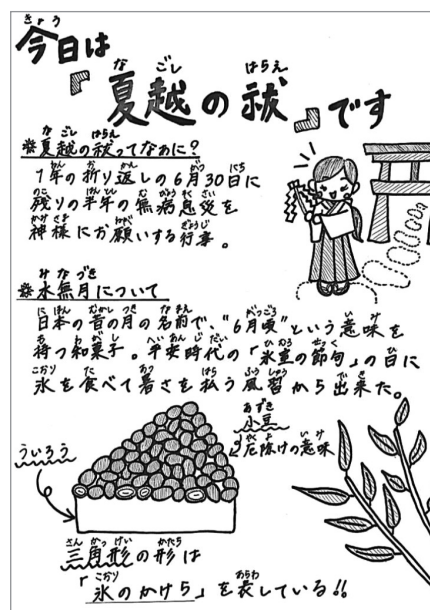 今日は
『夏越の祓』です
※夏越の祓ってなあに?
1年の折り返しの6月30日に
残りの半年の無病息災を
神様にお願いする行事。
※水無月について
日本の昔の月の名前で、"6月頃"という意味を
持つ和菓子。平安時代の「氷室の節句」の日に
氷を食べて暑さを払う風習から出来た。
小豆
厄除けの意味
ういろう
三角形の形は
「氷のかけら」を表している!!